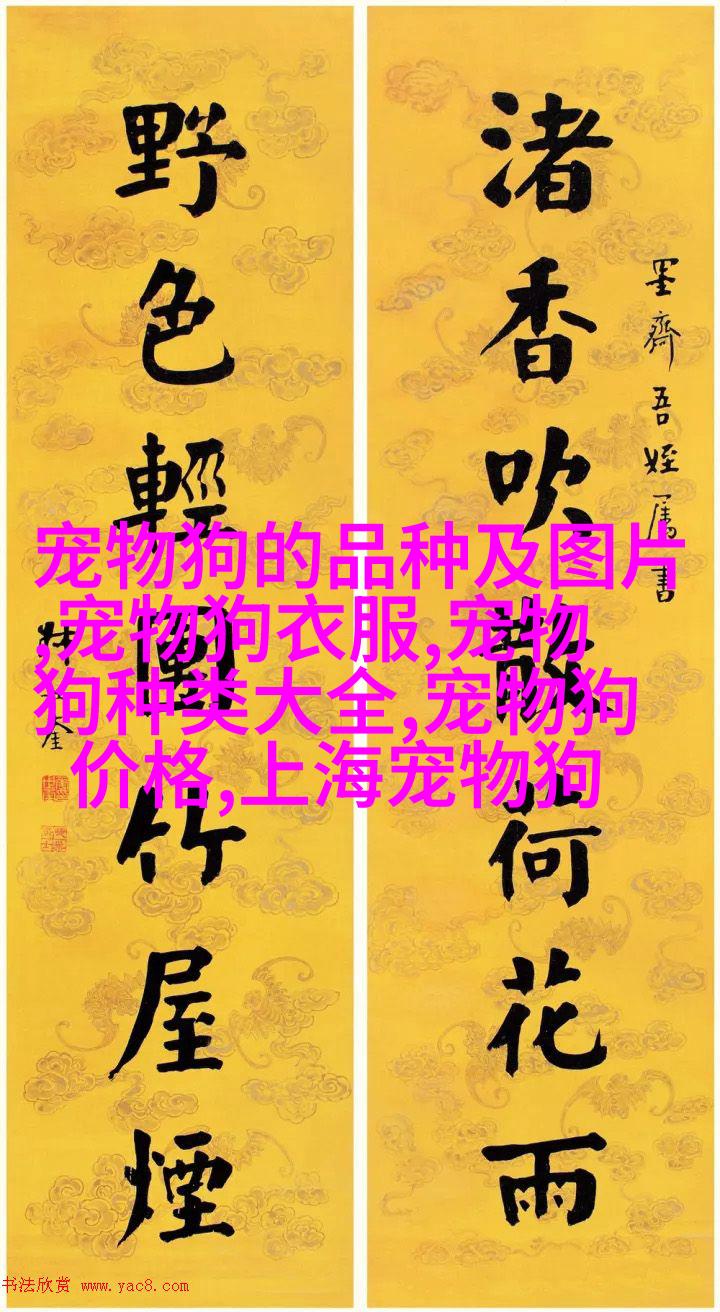 渚香吹散荷花雨
墨齋吾姪属書
野色輕竹屋煙
宠物狗的品种及图片
,宠物狗衣服,宠物
狗种类大全,宠物狗
价格,上海宠物狗
书法欣赏 www.yac8.com